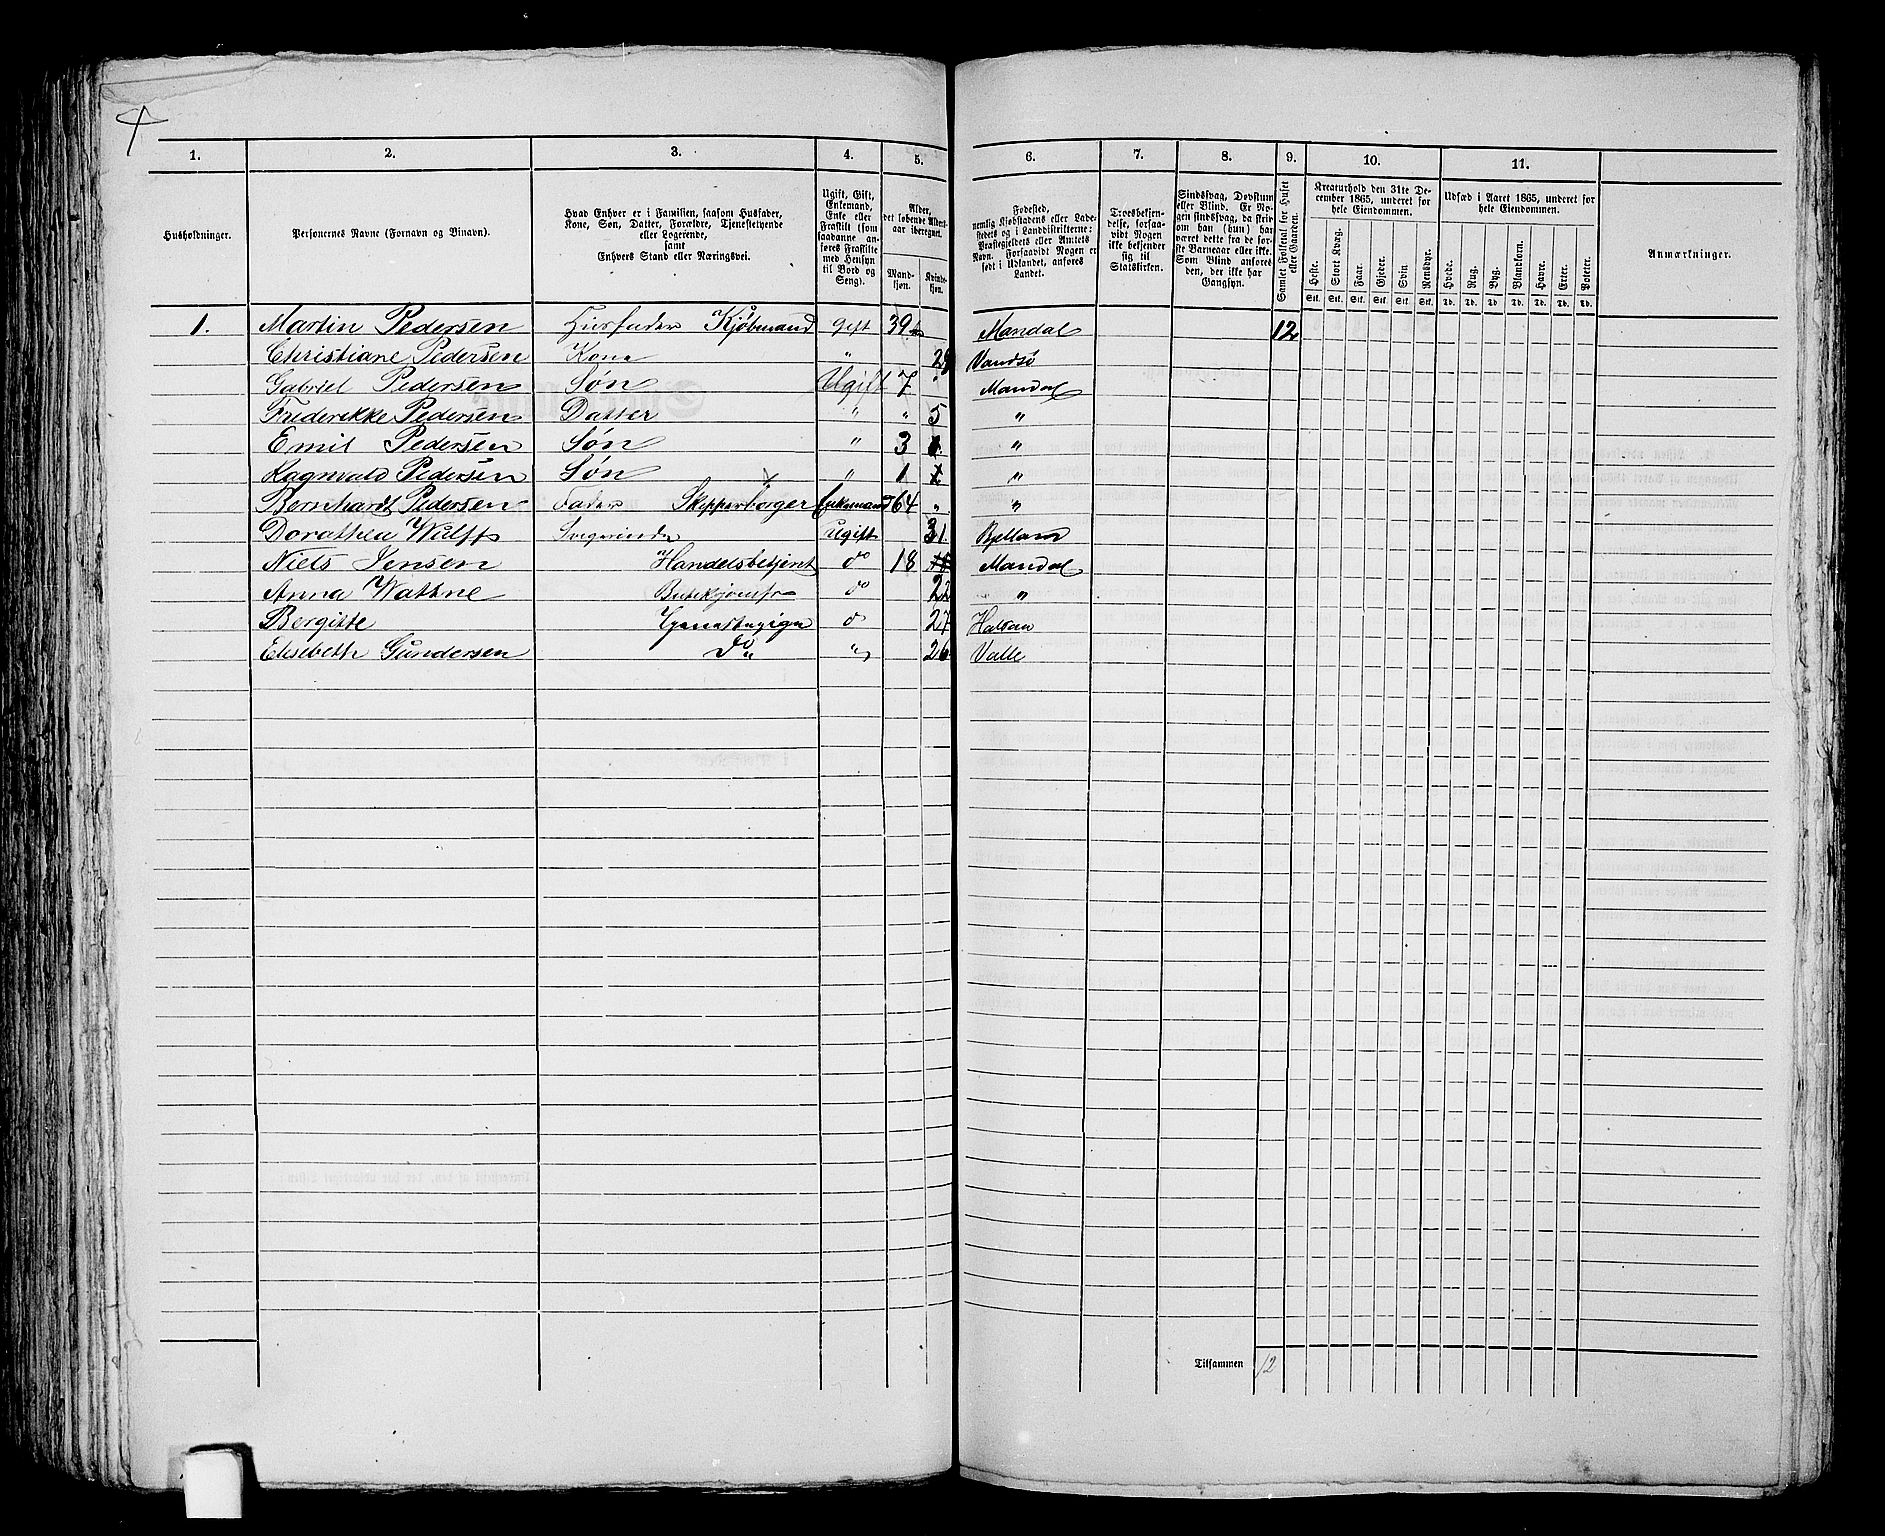 4
1. 2. 3. 4. 5. 6. 7. 8. 9. 10. 11.
Husholdninger.
Personernes Navne (Fornavn og Binavn).
Hvad Enhver er i Familien, saasom Husfader,
Kone, Søn, Datter, Forældre, Tjenestetyende
eller Logerende,
samt
Enhvers Stand eller Næringsvei.
Ugift, Gift,
Enkemand,
Enke eller
Fraskilt (som
saadanne an-
føres Fraskilte
med Hensyn
til Bord og
Seng).
Alder,
det løbende Alders-
aar iberegnet.
Mand-
kjøn.
Kvinde-
kjøn.
Fødested,
nemlig Kjøbstadens eller Lade-
stedets og i Landdistrikterne:
Præstegjeldets eller Amtets
Navn. Forsaavidt Nogen er
født i Udlandet, anføres
Landet.
Troesbekjen-
delse, forsaa-
vidt Nogen
ikke bekjender
sig til
Statskirken.
Sindssvag, Døvstum
eller Blind. Er No-
gen sindssvag, da skriv
om han (hun) har
været dette fra de før-
ste Barneaar eller ikke.
Som Blind anføres
den, der ikke har
Gangsyn.
Samlet Folketal for Huset
eller Gaarden.
Kreaturhold den 31te De-
cember 1865, underet for
hele Eiendommen.
Heste. Stort Kvæg. Faar. Gjeder. Svin. Rensdyr.
Stk. Stk. Stk. Stk. Stk. Stk.
Udsæd i Aaret 1865, underet for
hele Eiendommen.
Hvede. Rug. Byg. Blandkorn. Havre. Erter. Poteter.
Td. Td. Td. Td. Td. Td. Td.
Anmærkninger.
1. Martin Pedersen Husfader Kjøbmand gift 39 Mandal 12
Christiane Pedersen Kone " 29 Vandsø
Gabriel Pedersen Søn Ugift 7 " Mandal
Frederikke Pedersen Datter " " 5 "
Emil Pedersen Søn " 3 "
Ragnvald Pedersen Søn " 1 "
Bernhardt Pedersen Fader Skipperborger Enkemand 64 " "
Dorothea Wulff Svigerinde ugift 31 Bjelland
Niels Jensen Handelsbetjent do 18 Mandal
Anna Wattne Butikjomfr do 22 "
Bergitte Tjenestepige do 27 Halsaa
Elisebeth Gundersen Do " " 26 Valle
Tilsammen 12